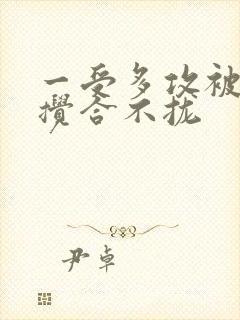 一受多攻被
攪合不拢
尹卓